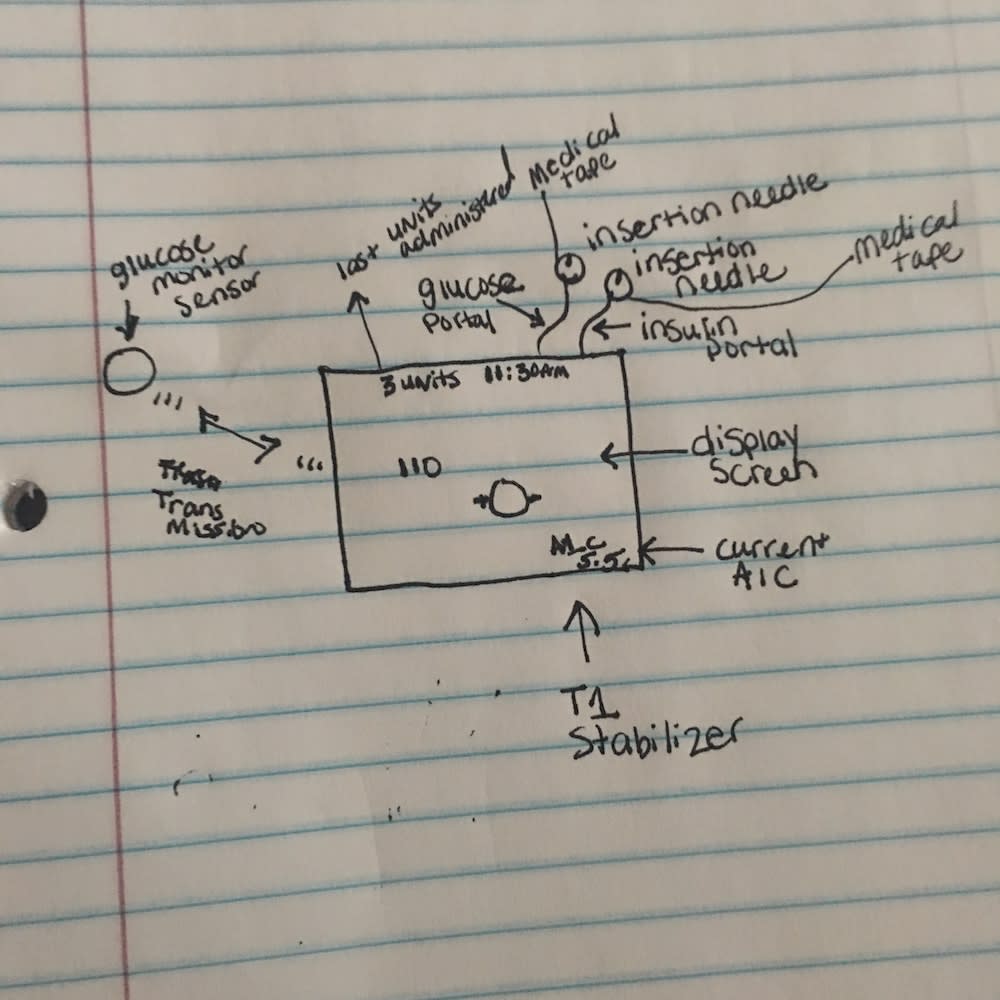 Medical
tape
insertion needle
last units
administered
glucose
monitor
sensor
insertion
needle
medical
tape
glucose
portal
insulin
portal
3 units 11:30AM
display
screen
110
Trans
Mission
5.5
current
A1C
T1
Stabilizer